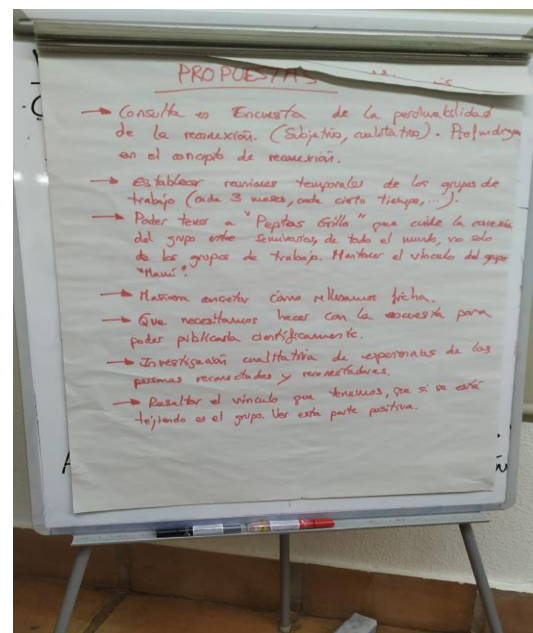 PROPUESTAS
→ Consulta o Encuesta de la perdurabilidad
de la reconexión. (Subjetivo, cualitativo). Profundizar
en el concepto de reconexión.
→ Establecer reuniones temporales de los grupos de
trabajo (cada 3 meses, cada cierto tiempo, ...).
→ Poder tener a "Pepitas Grillo" que cuide la conexión
del grupo entre seminarios, de todo el mundo, no solo
de los grupos de trabajo. Mantener el vínculo del grupo
→ cómo rellenamos ficha.
→ Que necesitamos hacer con la encuesta para
poder publicarla científicamente.
→ Investigación cualitativa de experiencias de las
personas reconectadas y reconectadoras.
→ Resaltar el vínculo que tenemos, que si se está
tejiendo en el grupo. Ver esta parte positiva.